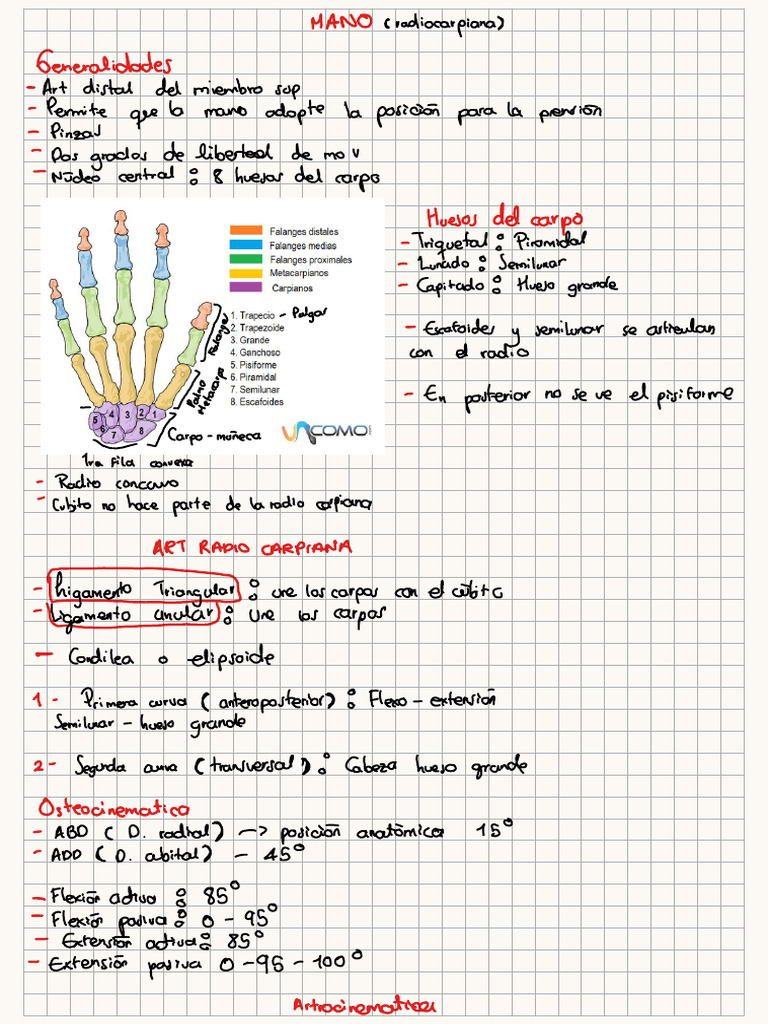 MANO (radiocarpiana)
Generalidades
- Art distal del miembro sup
- Permite que la mano adopte la posición para la prensión
- Pinzas
- Dos grados de libertad de mov
- Núcleo central : 8 huesos del carpo
Falanges distales
Falanges medias
Falanges proximales
Metacarpianos
Carpianos
1. Trapecio - Pulgar
2. Trapezoide
3. Grande
4. Ganchoso
5. Pisiforme
6. Piramidal
7. Semilunar
8. Escafoides
Falange
Palma
Metacarpo
5 4 3 2 1
6 7 8
Carpo - muñeca
UNCOMO
Huesos del carpo
- Triquetal : Piramidal
- Lunado : Semilunar
- Capitado : Hueso grande
- Escafoides y semilunar se articulan
con el radio
- En posterior no se ve el pisiforme
1ra Fila convexa
- Radio concavo
- Cubito no hace parte de la radio carpiana
ART RADIO CARPIANA
- Ligamento Triangular : une los carpos con el cúbito
- Ligamento anular : Une los carpos
- Condilea o elipsoide
1- Primera curva (anteroposterior) : Flexo - extensión
Semilunar - hueso grande
2- Segunda curva (transversal) : Cabeza hueso grande
Osteocinematica
- ABD (D. radial) -> posición anatómica 15°
- ADD (D. cubital) - 45°
- Flexión activa : 85°
- Flexión pasiva : 0 - 95°
- Extensión activa : 85°
- Extensión pasiva 0 - 95 - 100°
Artrocinematica